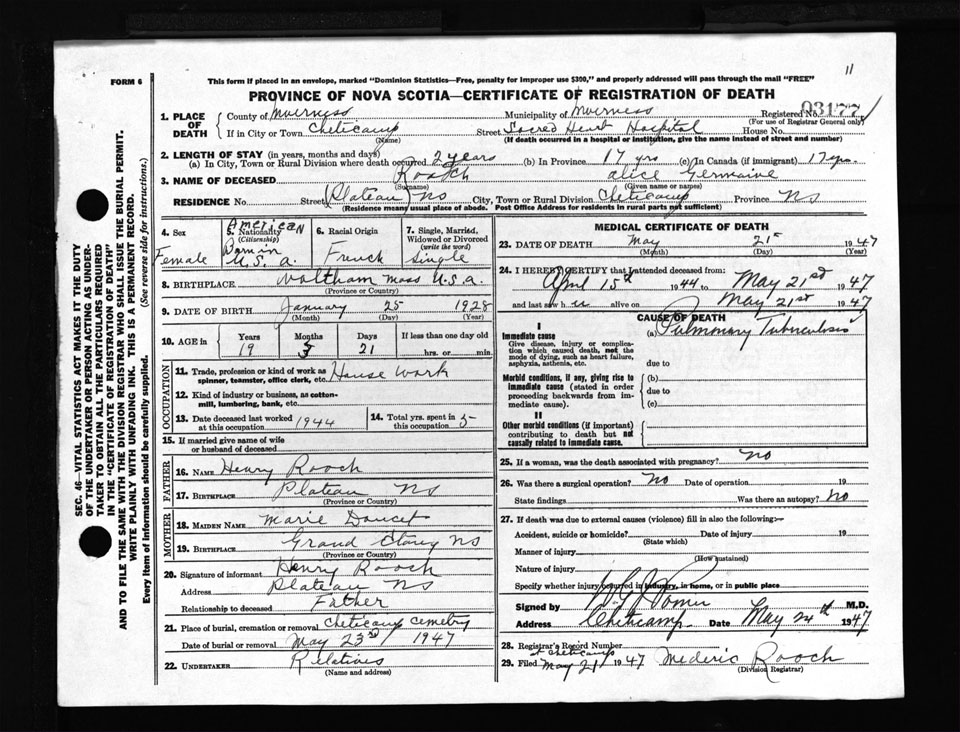 FORM 6
This form if placed in an envelope, marked "Dominion Statistics—Free, penalty for improper use $300," and properly addressed will pass through the mail "FREE"
11
PROVINCE OF NOVA SCOTIA—CERTIFICATE OF REGISTRATION OF DEATH
1. PLACE OF DEATH County of Inverness Municipality of Inverness Registered No. 03177
(For use of Registrar General only)
If in City or Town Cheticamp Street Sacred Heart Hospital House No.
(Name) (If death occurred in a hospital or institution, give the name instead of street and number)
2. LENGTH OF STAY (in years, months and days)
(a) In City, Town or Rural Division where death occurred 2 years (b) In Province 17 yrs (c) In Canada (if immigrant) 17 yrs.
3. NAME OF DECEASED Rooch alice Germaine
(Surname) (Given name or names)
RESIDENCE No. Street Plateau NS City, Town or Rural Division Cheticamp Province NS
(Residence means usual place of abode. Post Office Address for residents in rural parts not sufficient)
4. Sex Female
5. Nationality (Citizenship) American Born in U.S.a.
6. Racial Origin French
7. Single, Married, Widowed or Divorced (write the word) Single
8. BIRTHPLACE Waltham Mass U.S.a.
(Province or Country)
9. DATE OF BIRTH January 25 1928
(Month) (Day) (Year)
10. AGE in Years Months Days If less than one day old
19 3 21 hrs. or min.
OCCUPATION
11. Trade, profession or kind of work as spinner, teamster, office clerk, etc. House work
12. Kind of industry or business, as cotton-mill, lumbering, bank, etc.
13. Date deceased last worked at this occupation 1944
14. Total yrs. spent in this occupation 5
15. If married give name of wife or husband of deceased
FATHER
16. NAME Henry Rooch
17. BIRTHPLACE Plateau NS
(Province or Country)
MOTHER
18. MAIDEN NAME Marie Doucet
19. BIRTHPLACE Grand Etang NS
(Province or Country)
20. Signature of informant Henry Rooch
Address Plateau NS
Relationship to deceased Father
21. Place of burial, cremation or removal Cheticamp cemetry
Date of burial or removal May 23rd 1947
22. UNDERTAKER Relatives
(Name and address)
MEDICAL CERTIFICATE OF DEATH
23. DATE OF DEATH May 21st 1947
(Month) (Day) (Year)
24. I HEREBY CERTIFY that I attended deceased from:
April 15th 1944 to May 21st 1947
and last saw h er alive on May 21st 1947
CAUSE OF DEATH
I
Immediate cause
Give disease, injury or complication which caused death, not the mode of dying, such as heart failure, asphyxia, asthenia, etc.
(a) Pulmonary Tuberculosis
due to
Morbid conditions, if any, giving rise to immediate cause (stated in order proceeding backwards from immediate cause).
(b)
due to
(c)
II
Other morbid conditions (if important) contributing to death but not causally related to immediate cause.
25. If a woman, was the death associated with pregnancy? No
26. Was there a surgical operation? No Date of operation 19
State findings Was there an autopsy? No
27. If death was due to external causes (violence) fill in also the following:—
Accident, suicide or homicide? Date of injury 19
(State which)
Manner of injury
(How sustained)
Nature of injury
Specify whether injury occurred in industry, in home, or in public place
Signed by M.D.
Address Cheticamp Date May 24th 1947
28. Registrar's Record Number
at Cheticamp
29. Filed May 21 1947 Mederic Rooch
(Division Registrar)
SEC. 46—VITAL STATISTICS ACT MAKES IT THE DUTY
OF THE UNDERTAKER OR PERSON ACTING AS UNDER-
TAKER TO OBTAIN ALL THE PARTICULARS REQUIRED
IN THE "CERTIFICATE OF REGISTRATION OF DEATH"
AND TO FILE THE SAME WITH THE DIVISION REGISTRAR WHO SHALL ISSUE THE BURIAL PERMIT.
WRITE PLAINLY WITH UNFADING INK. THIS IS A PERMANENT RECORD.
Every item of information should be carefully supplied. (See reverse side for instructions.)